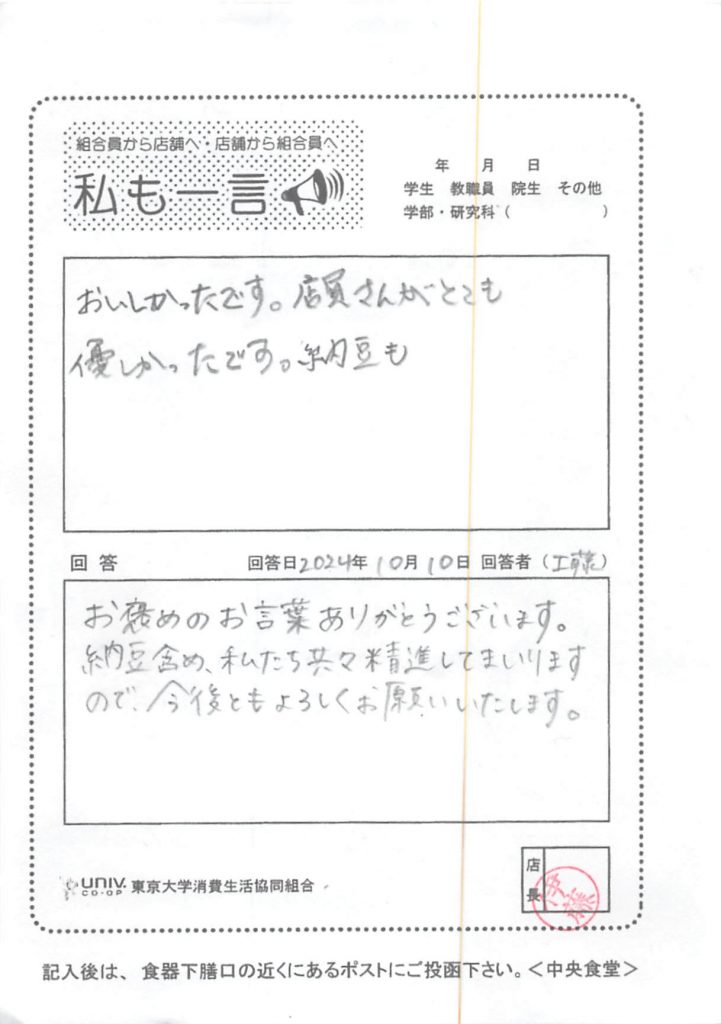 組合員から店舗へ・店舗から組合員へ
私も一言
年 月 日
学生 教職員 院生 その他
学部・研究科( )
おいしかったです。店員さんがとても
優しかったです。納豆も
回答 回答日2024年10月10日 回答者(工藤)
お褒めのお言葉ありがとうございます。
納豆含め、私たち共々精進してまいります
ので、今後ともよろしくお願いいたします。
店長
伊藤
UNIV. CO-OP 東京大学消費生活協同組合
記入後は、食器下膳口の近くにあるポストにご投函下さい。<中央食堂>